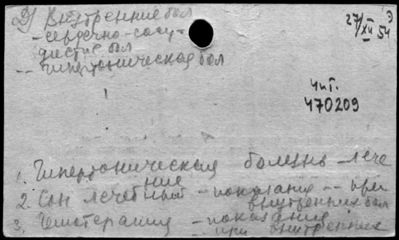 Д) Внутренние бол
27/XII 54
- сердечно-сосу-
дистые бол
-- гипертоническая бол
чит.
470209
1. Гипертоническая болезнь - лече
ние
2. Сон лечебный - показания -- при
внутренних бол
3. - показания
при внутренних